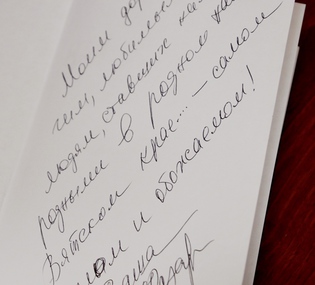 Моим дор
гим, любимы
людям, ставших на
родными в родном на
Вятском крае... – самом
лом и обожаемом!
аша